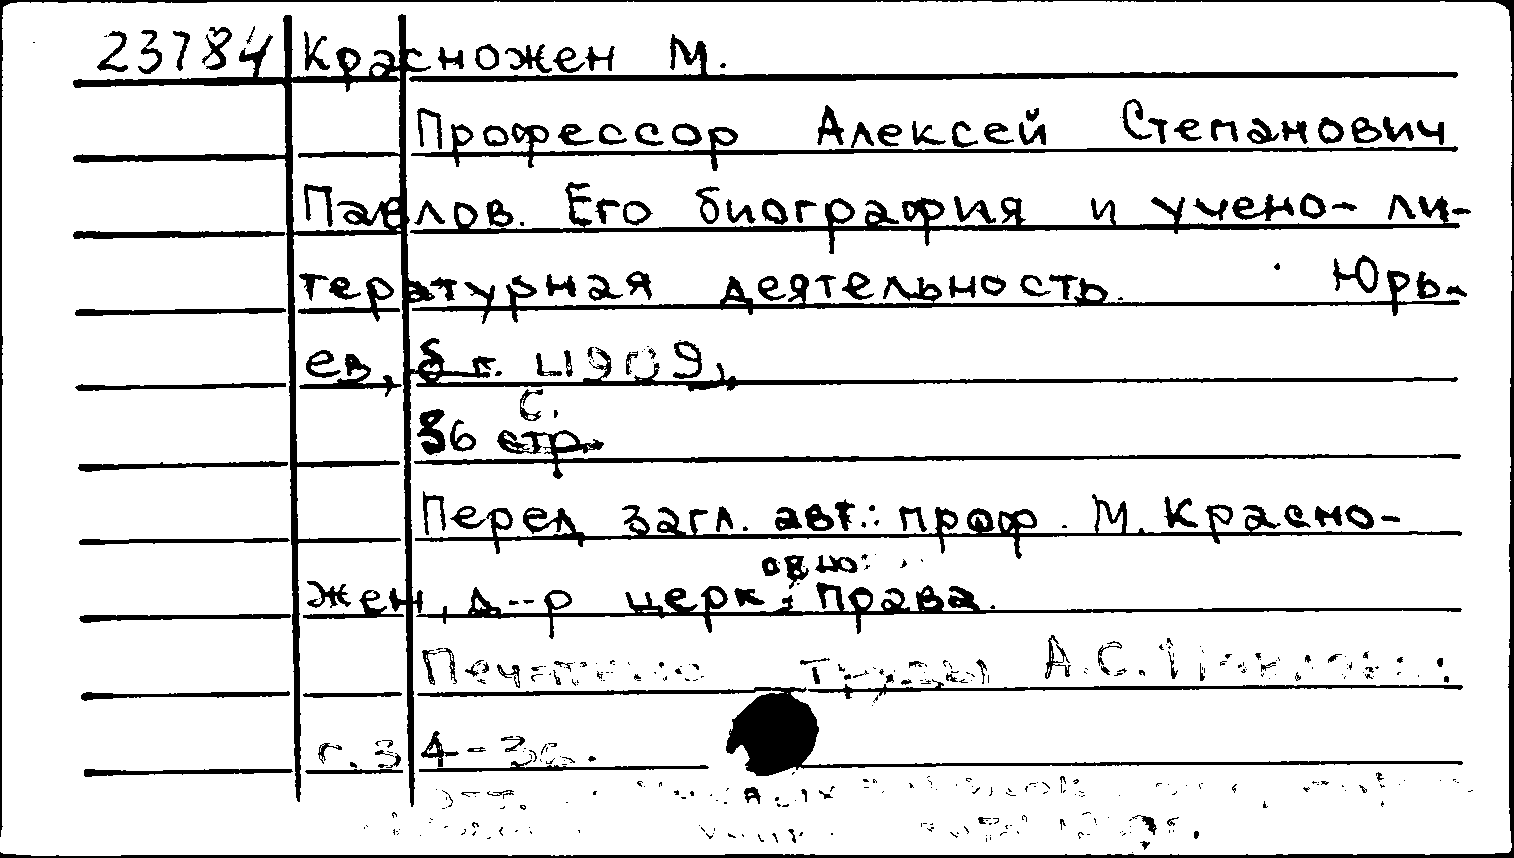 23784 Красножен М.
Профессор Алексей Степанович
Павлов. Его биография и учено-ли-
тературная деятельность. Юрь-
ев, б г. 1909,
с.
36 стр.
Перед загл. авт.: проф. М. Красно-
овно
жен, д-р церк. права.
Печатные труды А.С. Павлова:
с. 34-36.
отт.